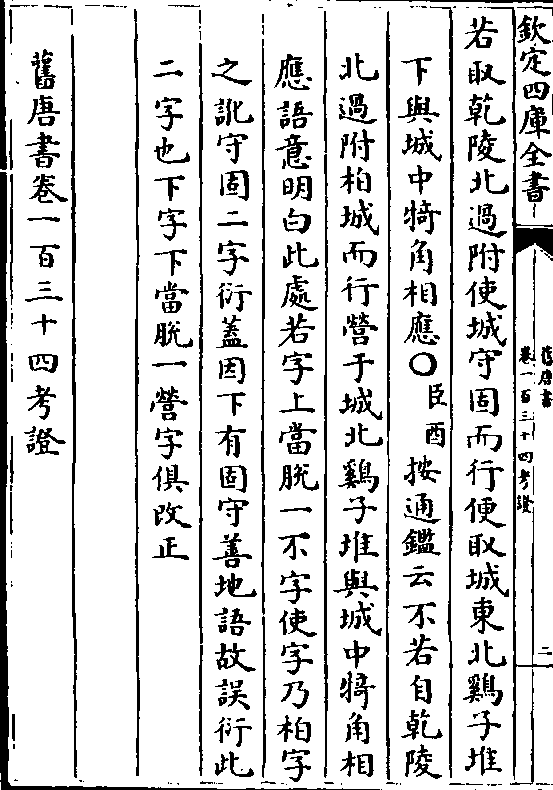 欽定四庫全書
舊唐書
卷一百三十四考證
二
若取乾陵北過附使城守固而行便取城東北鷄子堆
下與城中犄角相應〇臣酉按通鑑云不若自乾陵
北過附柏城而行營于城北鷄子堆與城中犄角相
應語意明白此處若字上當脫一不字使字乃柏字
之訛守固二字衍蓋因下有固守善地語故誤衍此
二字也下字下當脫一營字俱改正
舊唐書卷一百三十四考證